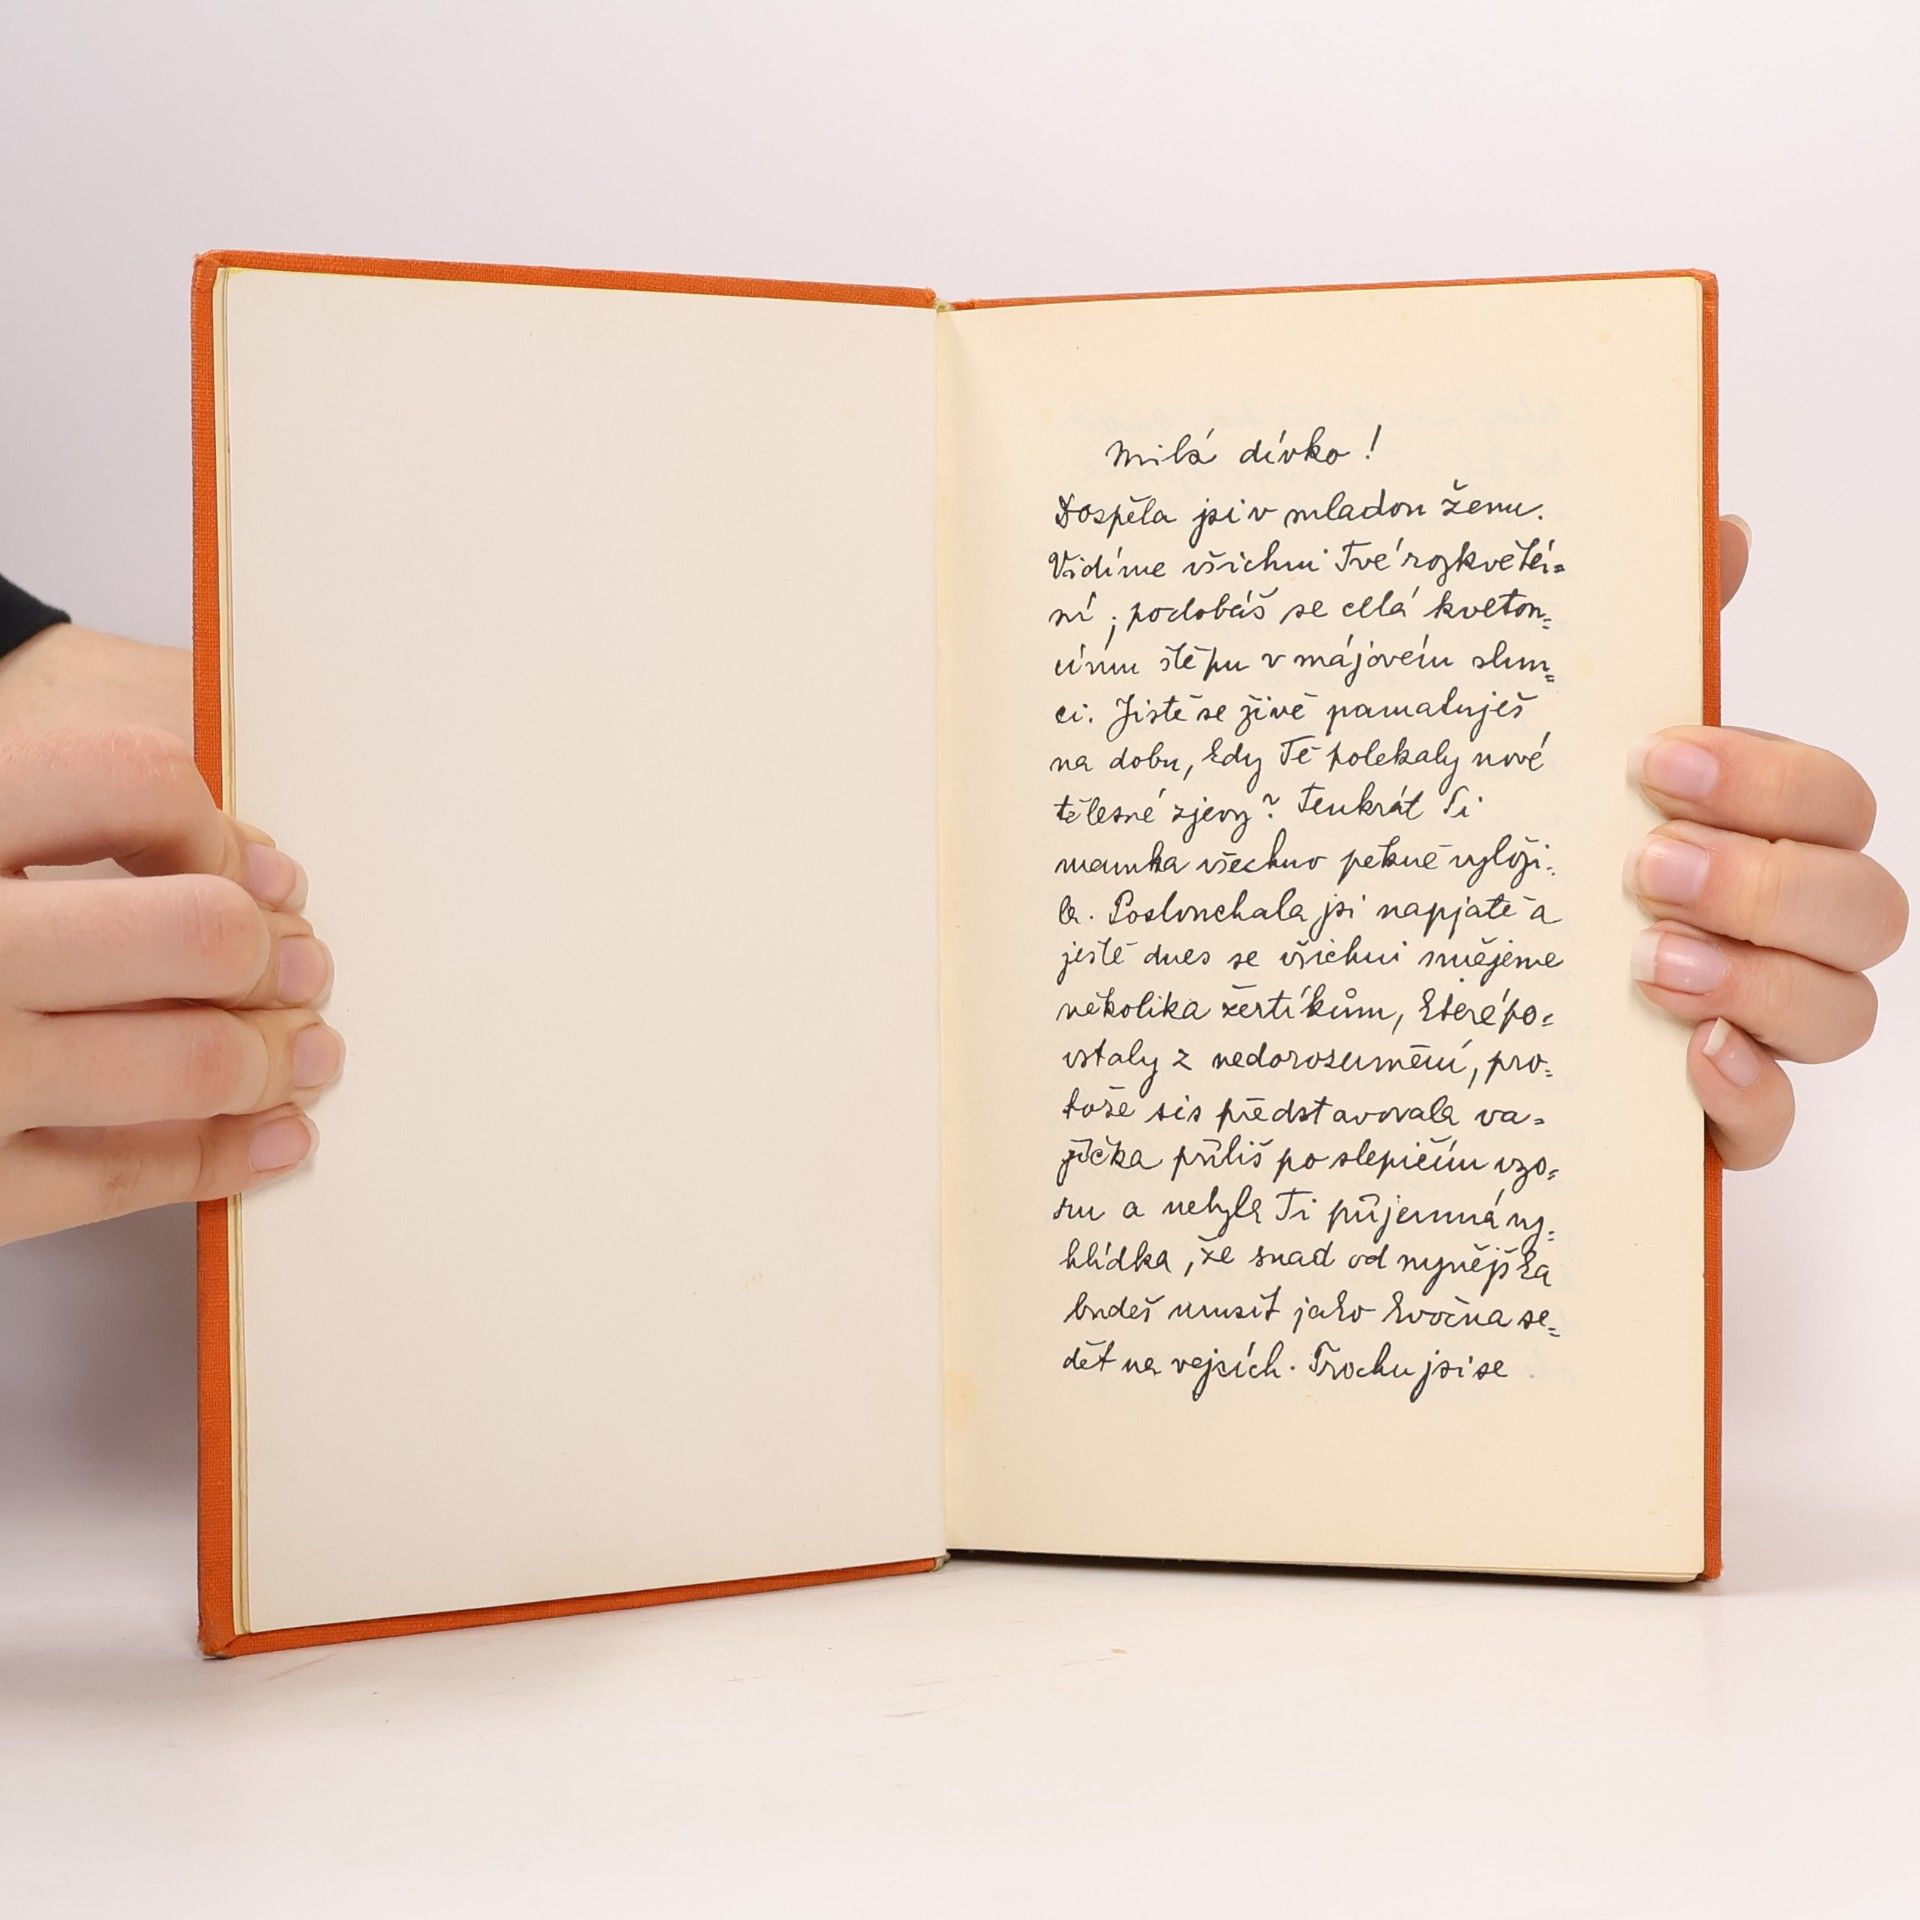 Milá dívko!
Dospěla jsi v mladou ženu.
Vidíme všichni Tvé rozkvétá=
ní; podobáš se celá kvetou=
címu štěpu v májovém slun=
ci. Jistě se živě pamatuješ
na dobu, kdy Tě polekaly nové
tělesné zjevy? Tenkrát Ti
mamka všechno pěkně vyloži=
la. Poslouchala jsi napjatě a
ještě dnes se všichni smějeme
několika žertíkům, které po=
vstaly z nedorozumění, pro=
tože sis představovala va=
jíčka příliš po slepičím vzo=
ru a nebyla Ti příjemná vy=
hlídka, že snad od nynějška
budeš muset jako kvočna se=
dět na vejcích. Trochu jsi se